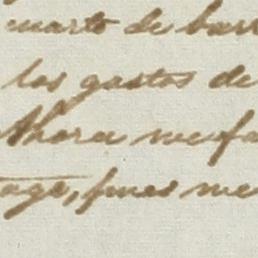 cuarto de bar
los gastos de
Ahora me fa
pues me